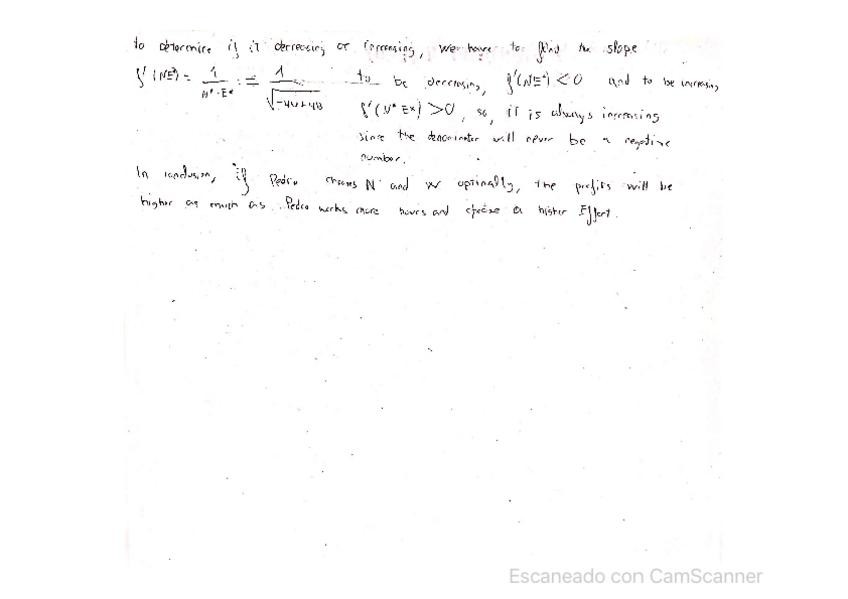 to determine if it decreasing or increasing, we have to find the slope
f'(NE*) = 1 / N*·E* = 1 / √-44+48 to be decreasing, f'(NE*) < 0 and to be increasing
f'(N* E*) > 0, so, it is always increasing
since the denominator will never be a negative
number.
In conclusion, if Pedro chooses N and W optimally, the profits will be
higher as much as Pedro works more hours and choose a higher Effort.
Escaneado con CamScanner